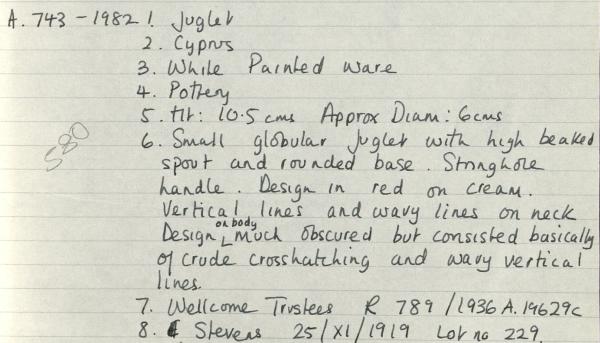 A. 743 - 1982 1. Juglet
2. Cyprus
3. White Painted Ware
4. Pottery
5. Ht: 10.5 cms Approx Diam: 6cms
580
6. Small globular juglet with high beaked
spout and rounded base. Stringhole
handle. Design in red on cream.
Vertical lines and wavy lines on neck
Design on body much obscured but consisted basically
of crude crosshatching and wavy vertical
lines.
7. Wellcome Trustees R 789 / 1936 A. 19629c
8. Stevens 25/XI/1919 Lot no 229.